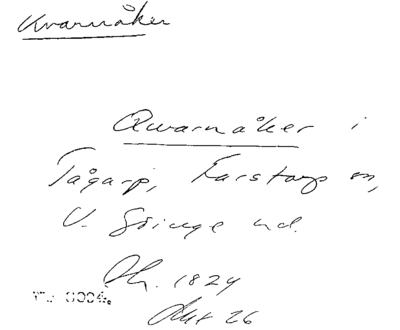 Kvarnåker
Qwarnåker i
Tågarp, Farstorp sn,
V. Göinge hd.
1824
Akt 26